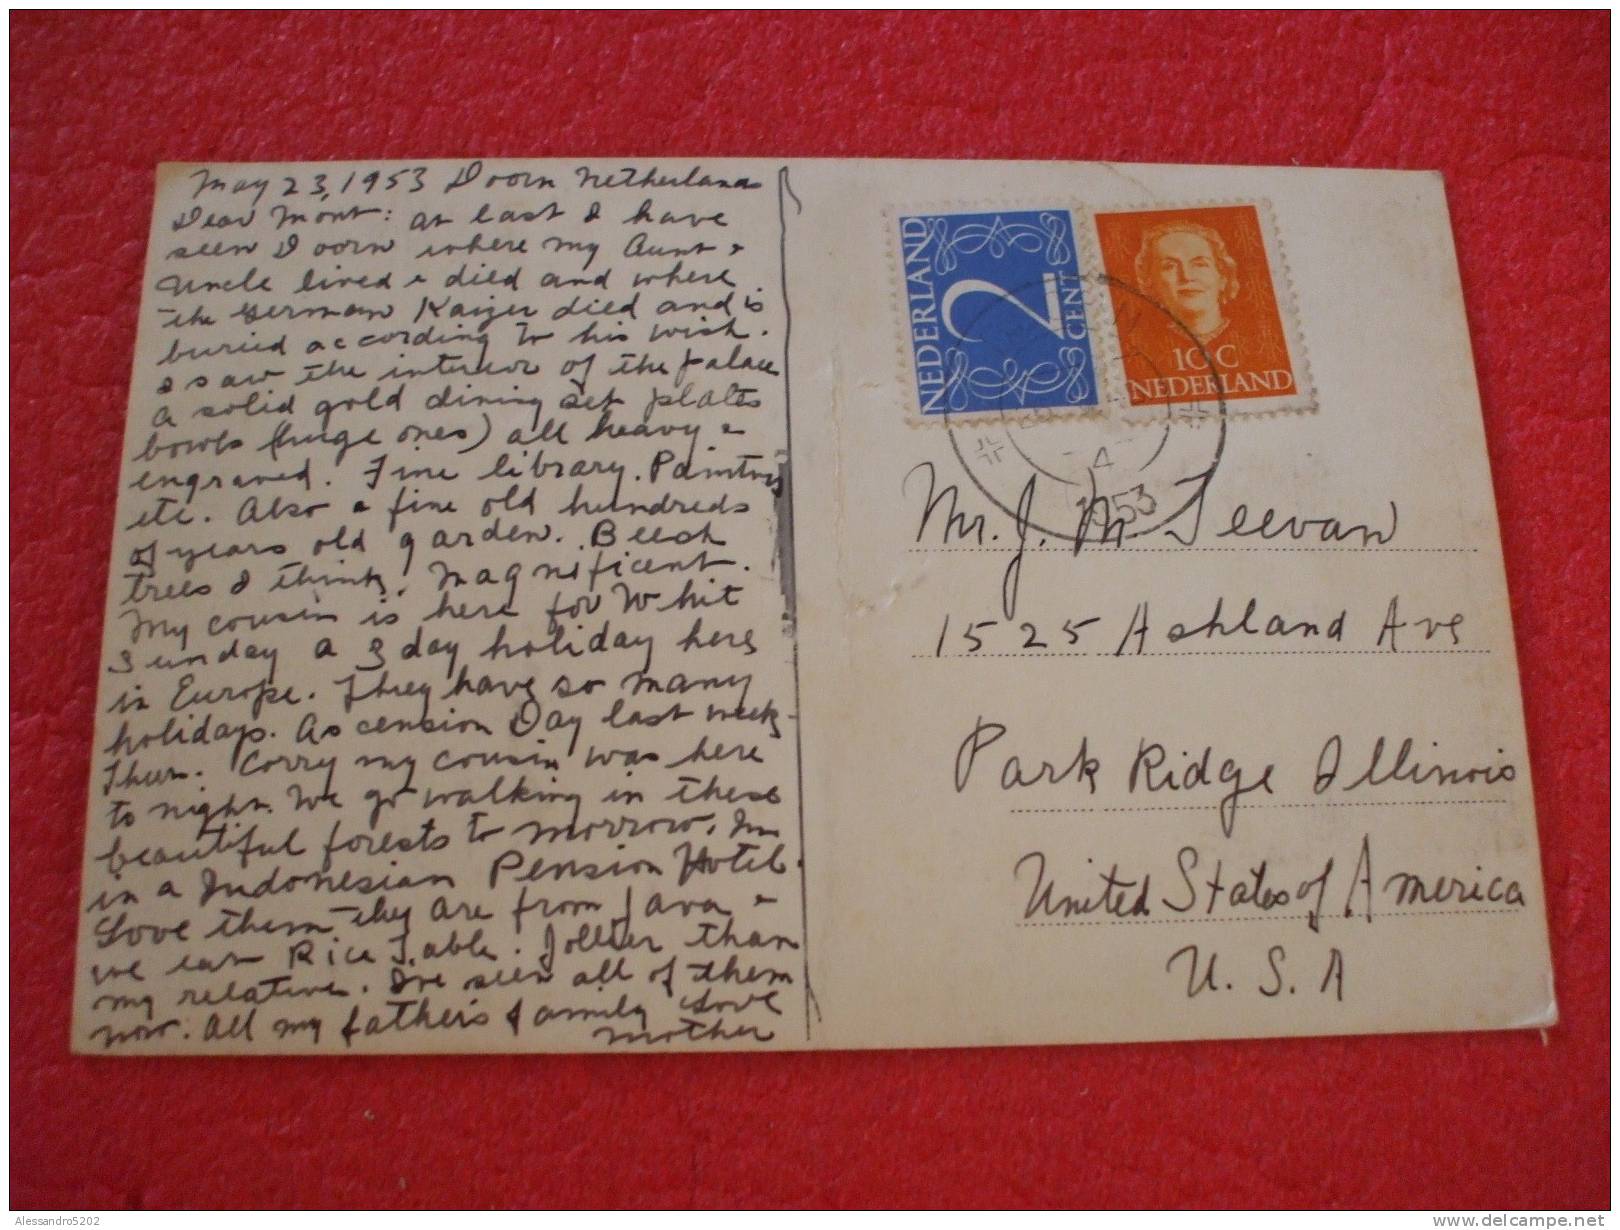 May 23, 1953 Doorn Netherlands
Dear Mont: at last I have
seen Doorn where my Aunt &
Uncle lived & died and where
the German Kaizer died and is
buried according to his wish.
I saw the interior of the palace
a solid gold dining set plates
bowls (huge ones) all heavy &
engraved. Fine library. Paintings
etc. Also a fine old hundreds
of years old garden. Beech
trees I think. Magnificent.
My cousin is here for Whit
Sunday a 3 day holiday here
in Europe. They have so many
holidays. Ascension Day last week
Thurs. Corry my cousin was here
to night. We go walking in these
beautiful forests to morrow. Im
in a Indonesian Pension Hotel.
Love them they are from Java &
we eat Rice Table. Jollier than
my relative. Ive seen all of them
now. All my fathers family Love
Mother
NEDERLAND
2
CENT
10 C
NEDERLAND
4
1953
Mr. J. M. Teevan
1525 Ashland Ave
Park Ridge Illinois
United States of America
U. S. A
Alessandro5202
www.delcampe.net